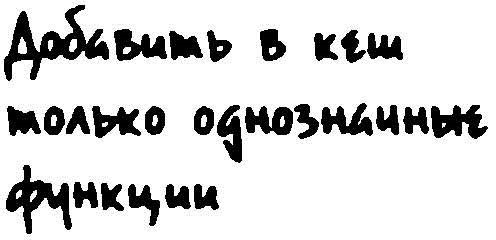 Добавить в кеш
только однозначные
функции